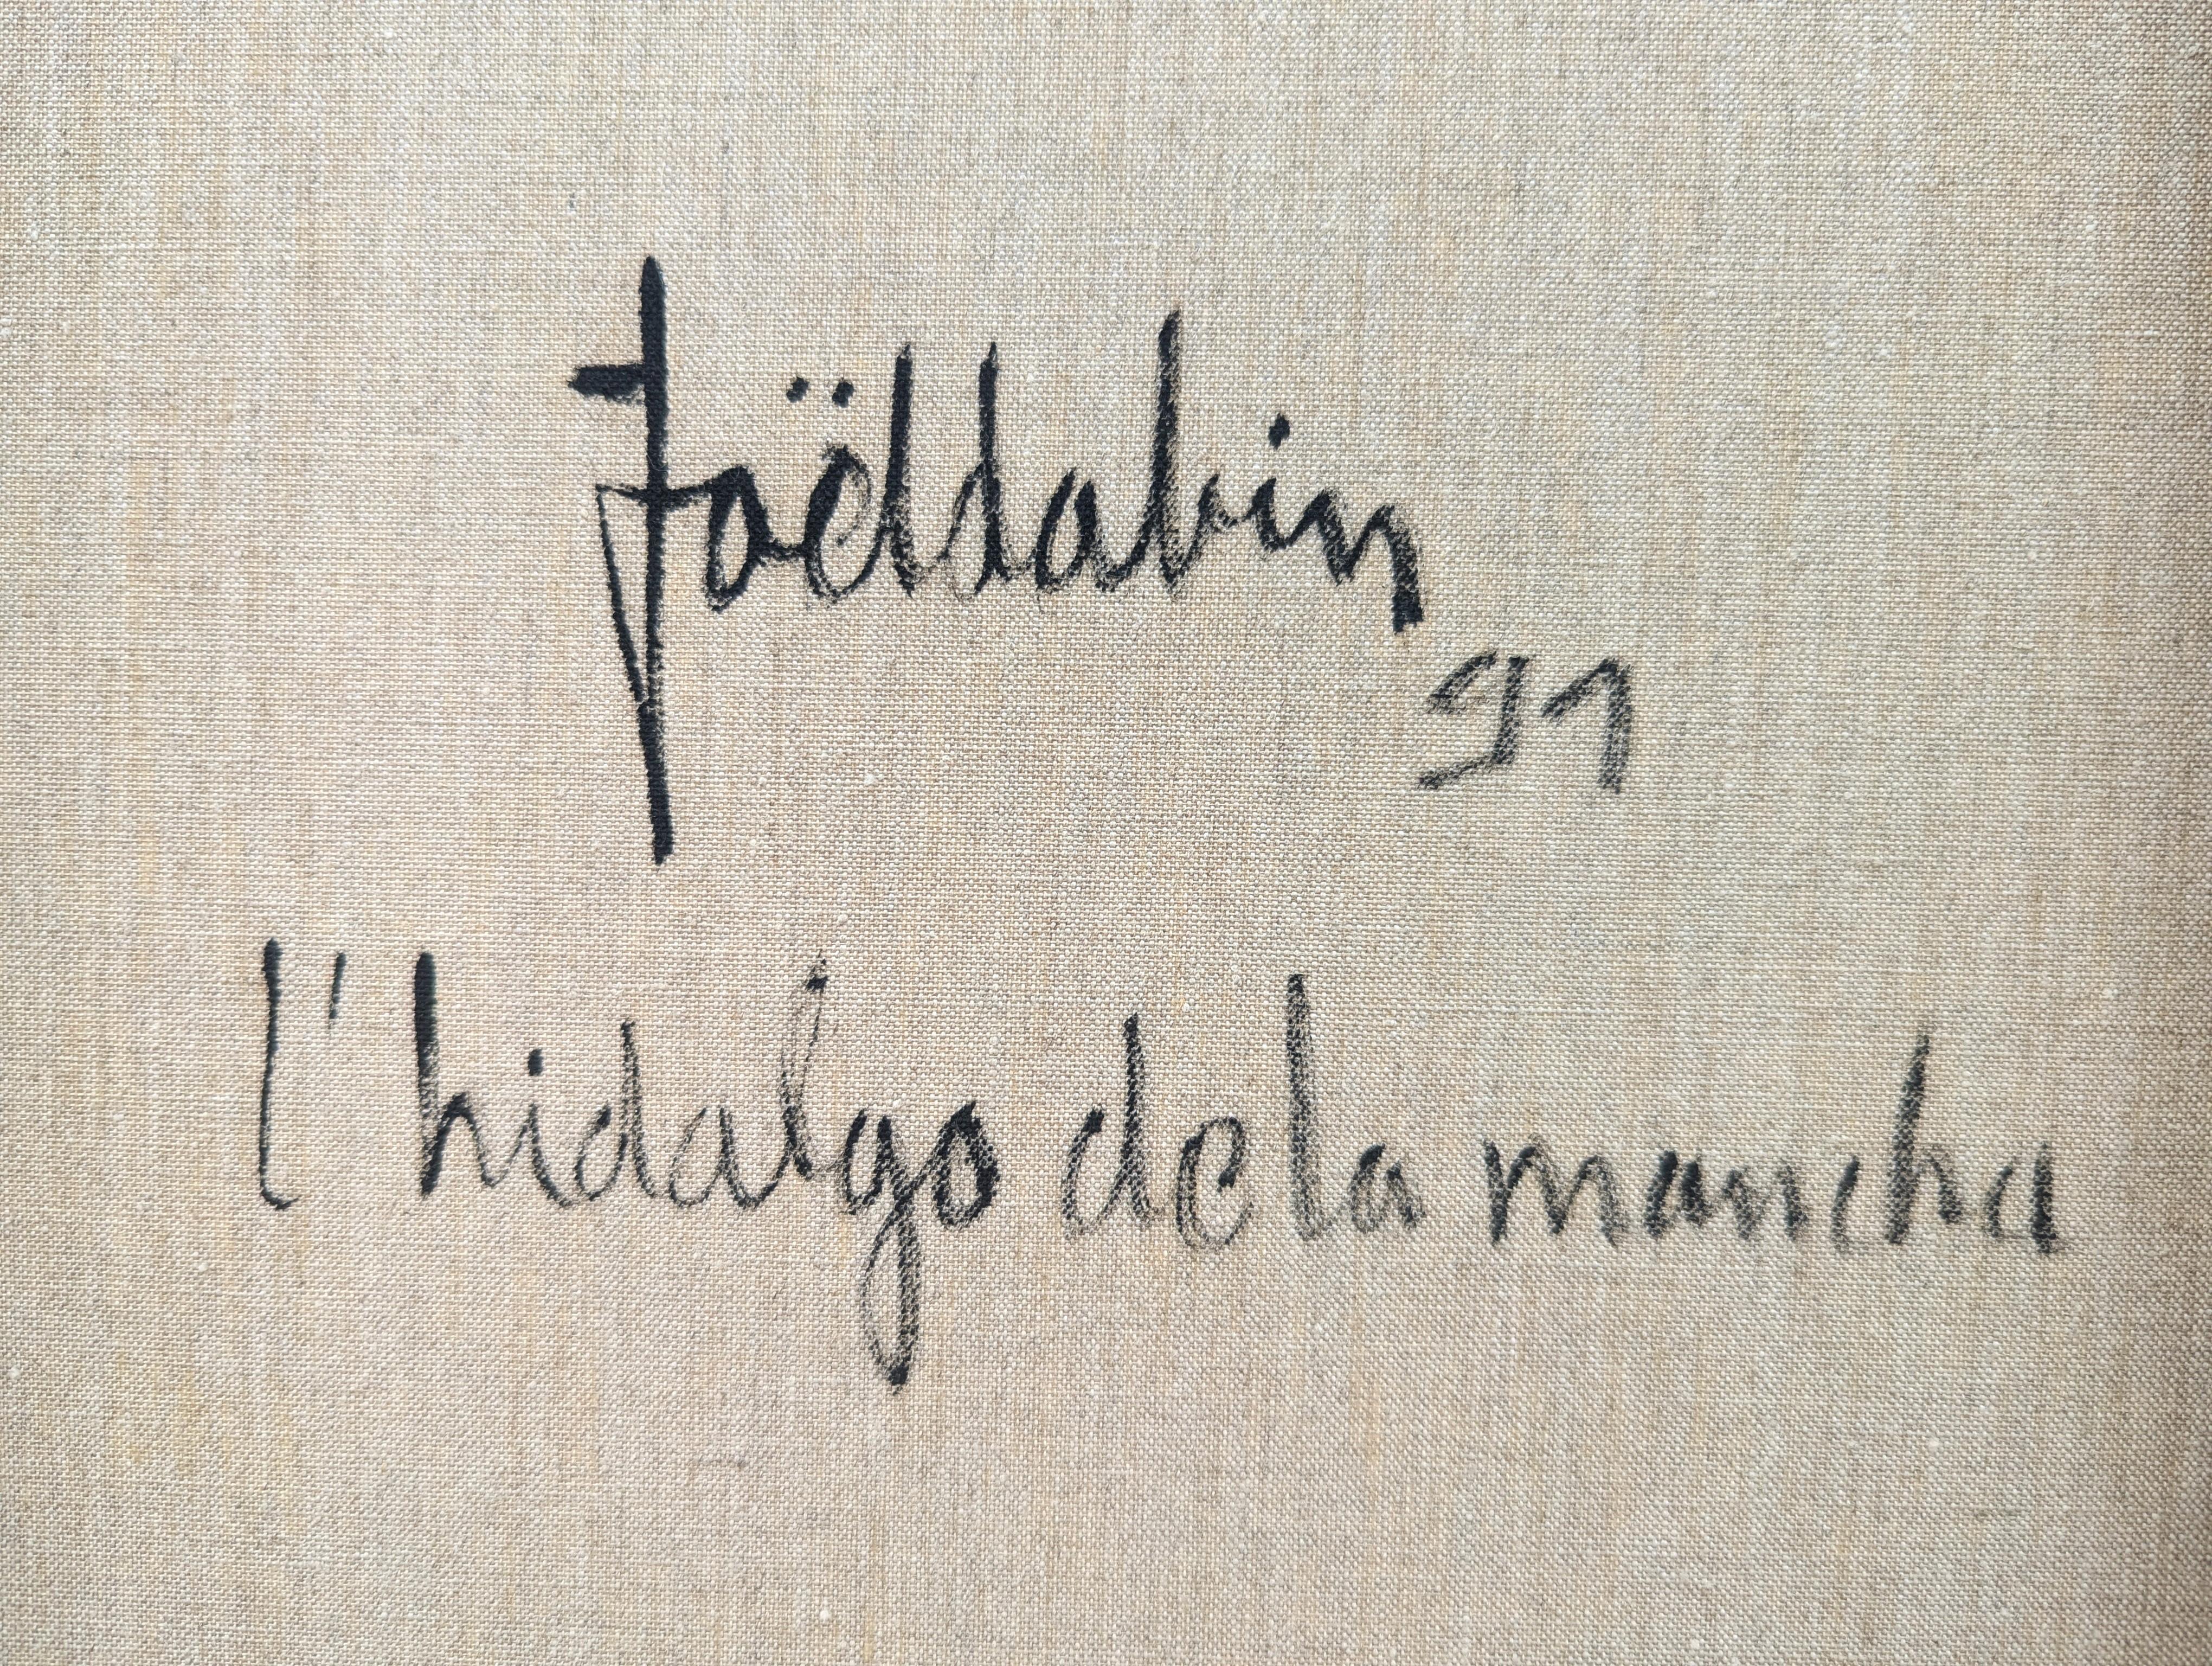 Joël Dabin
91
l'hidalgo de la mancha